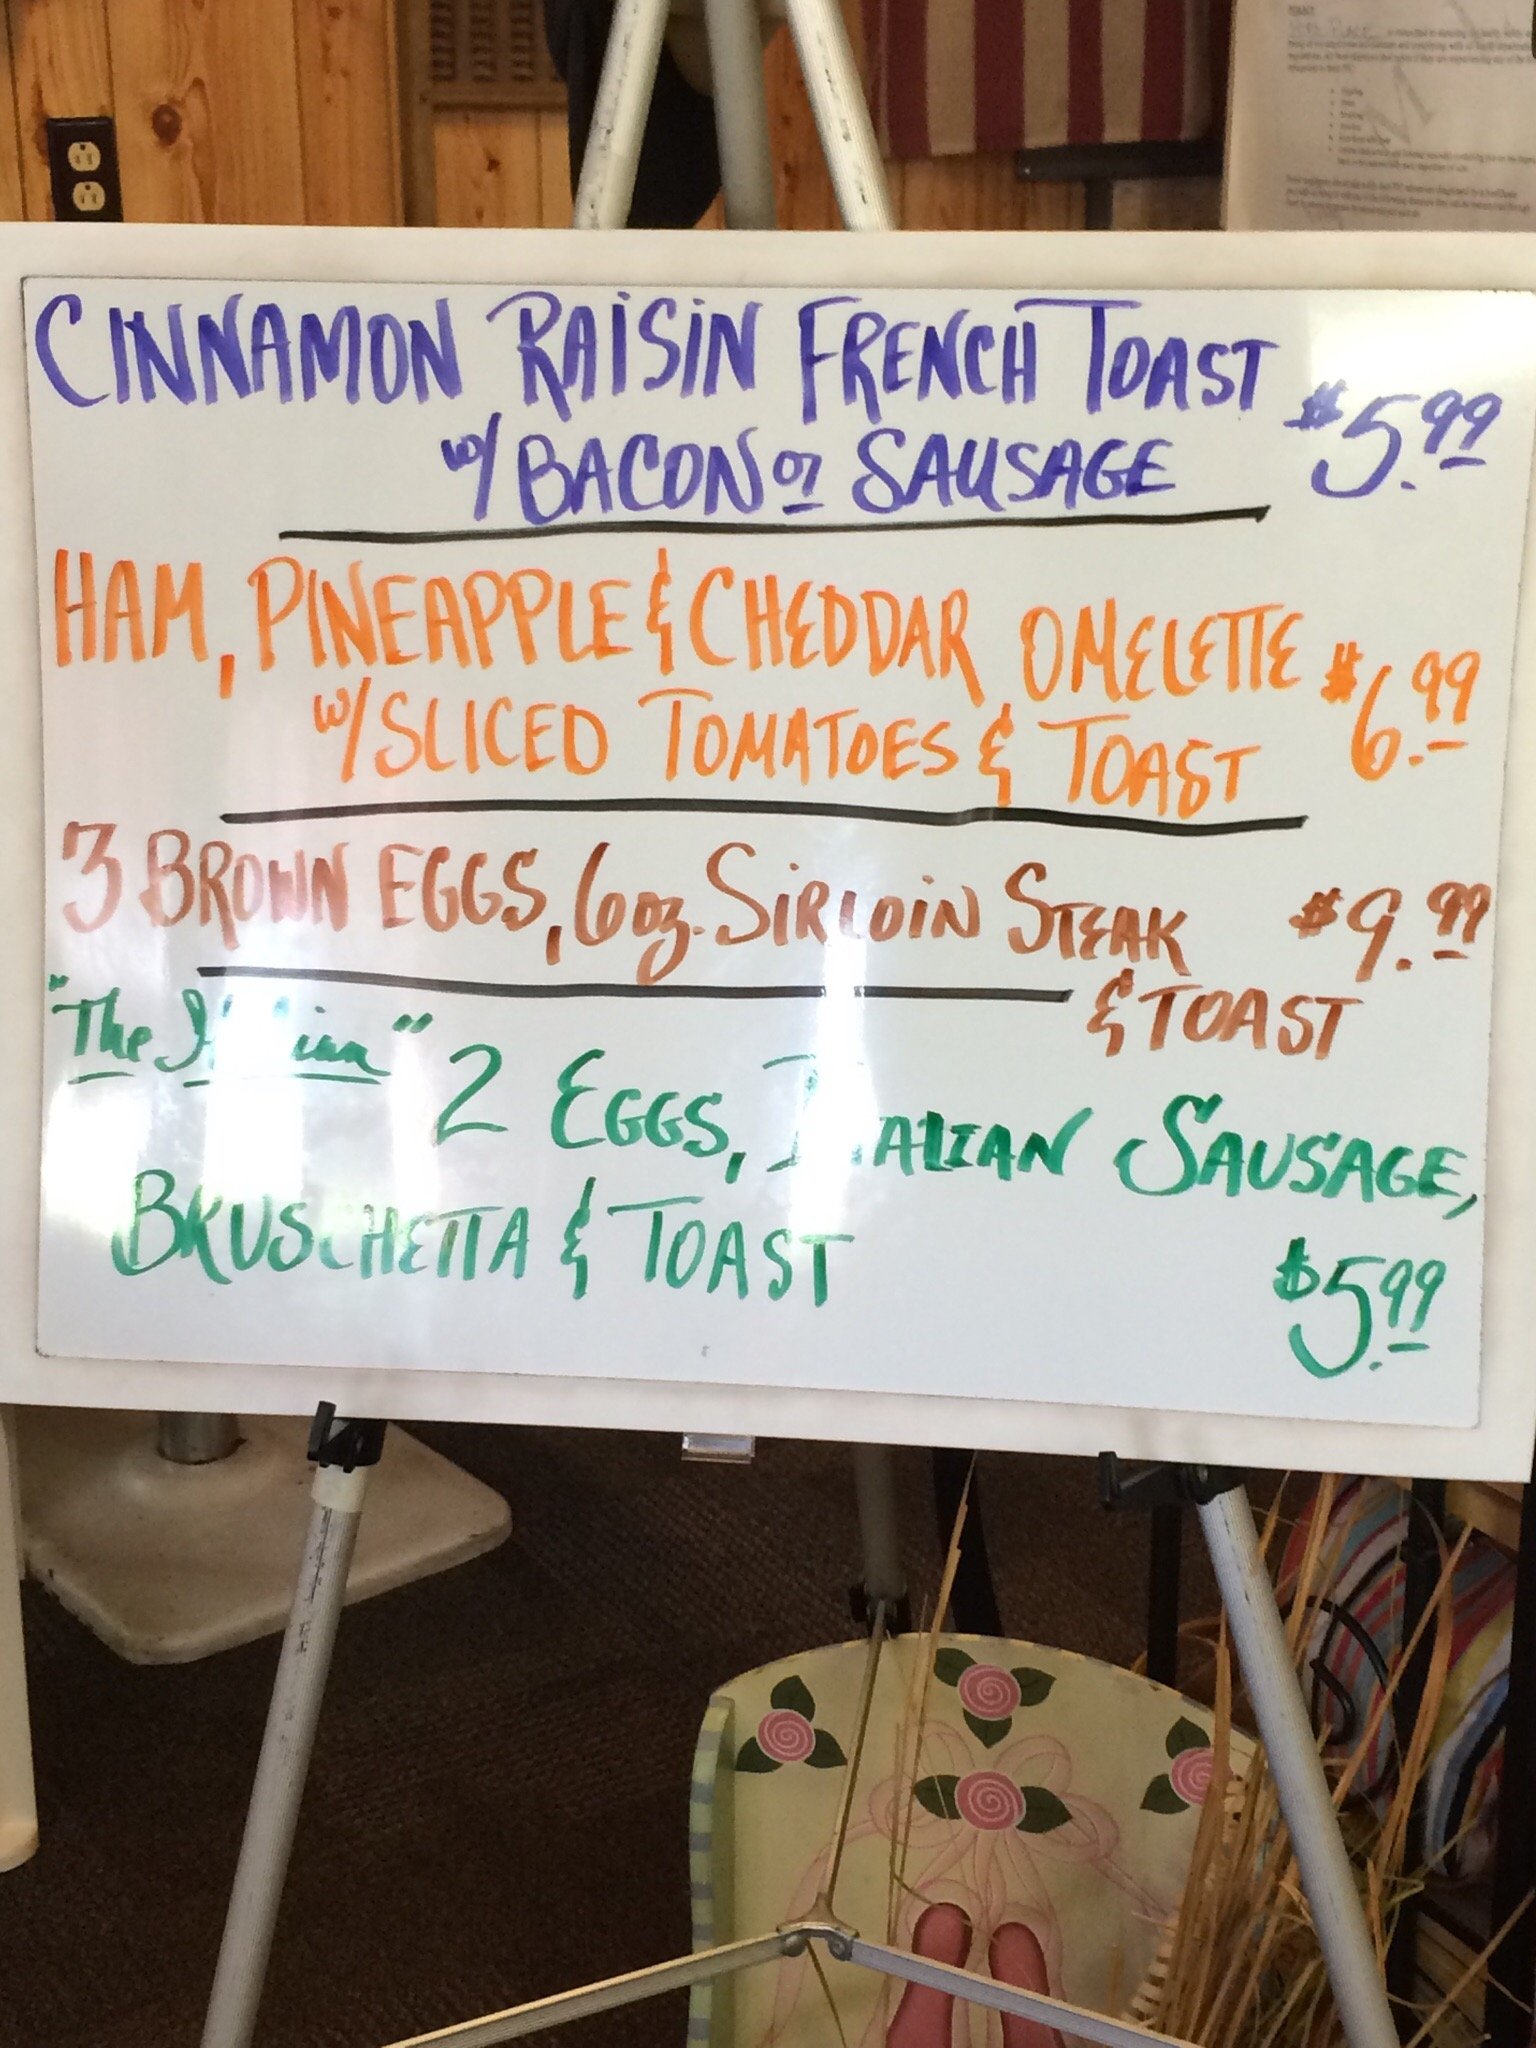 CINNAMON RAISIN FRENCH TOAST $5.99
w/ BACON or SAUSAGE
HAM, PINEAPPLE & CHEDDAR OMELETTE $6.99
w/ SLICED TOMATOES & TOAST
3 BROWN EGGS, 6oz. SIRLOIN STEAK $9.99
& TOAST
"The Italian" 2 EGGS, ITALIAN SAUSAGE,
BRUSCHETTA & TOAST $5.99